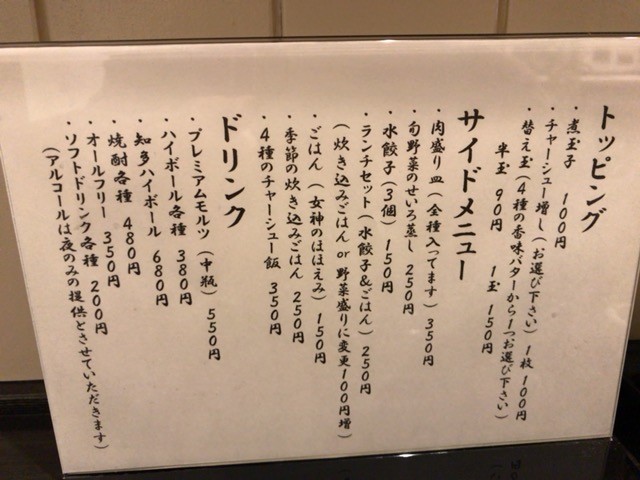 トッピング
・煮玉子 100円
・チャーシュー増し(お選び下さい) 1枚 100円
・替え玉(4種の香味バターから1つお選び下さい)
半玉 90円 1玉 150円
サイドメニュー
・肉盛り皿(全種入ってます) 350円
・旬野菜のせいろ蒸し 250円
・水餃子(3個) 150円
・ランチセット(水餃子&ごはん) 250円
(炊き込みごはん or 野菜盛りに変更100円増)
・ごはん(女神のほほえみ) 150円
・季節の炊き込みごはん 250円
・4種のチャーシュー飯 350円
ドリンク
・プレミアムモルツ(中瓶) 550円
・ハイボール各種 380円
・知多ハイボール 680円
・焼酎各種 480円
・オールフリー 350円
・ソフトドリンク各種 200円
(アルコールは夜のみの提供とさせていただきます)